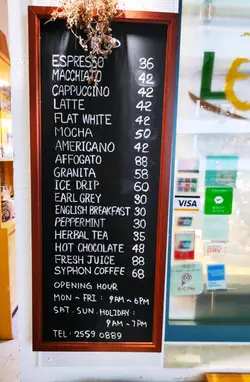 ESPRESSO 36
MACCHIATO 42
CAPPUCCINO 42
LATTE 42
FLAT WHITE 42
MOCHA 50
AMERICANO 42
AFFOGATO 88
GRANITA 58
ICE DRIP 60
EARL GREY 30
ENGLISH BREAKFAST 30
PEPPERMINT 30
HERBAL TEA 35
HOT CHOCOLATE 48
FRESH JUICE 88
SYPHON COFFEE 68
OPENING HOUR
MON ~ FRI : 9AM~6PM
SAT. SUN. HOLIDAY :
9AM~7PM
TEL : 2559 0889
VISA